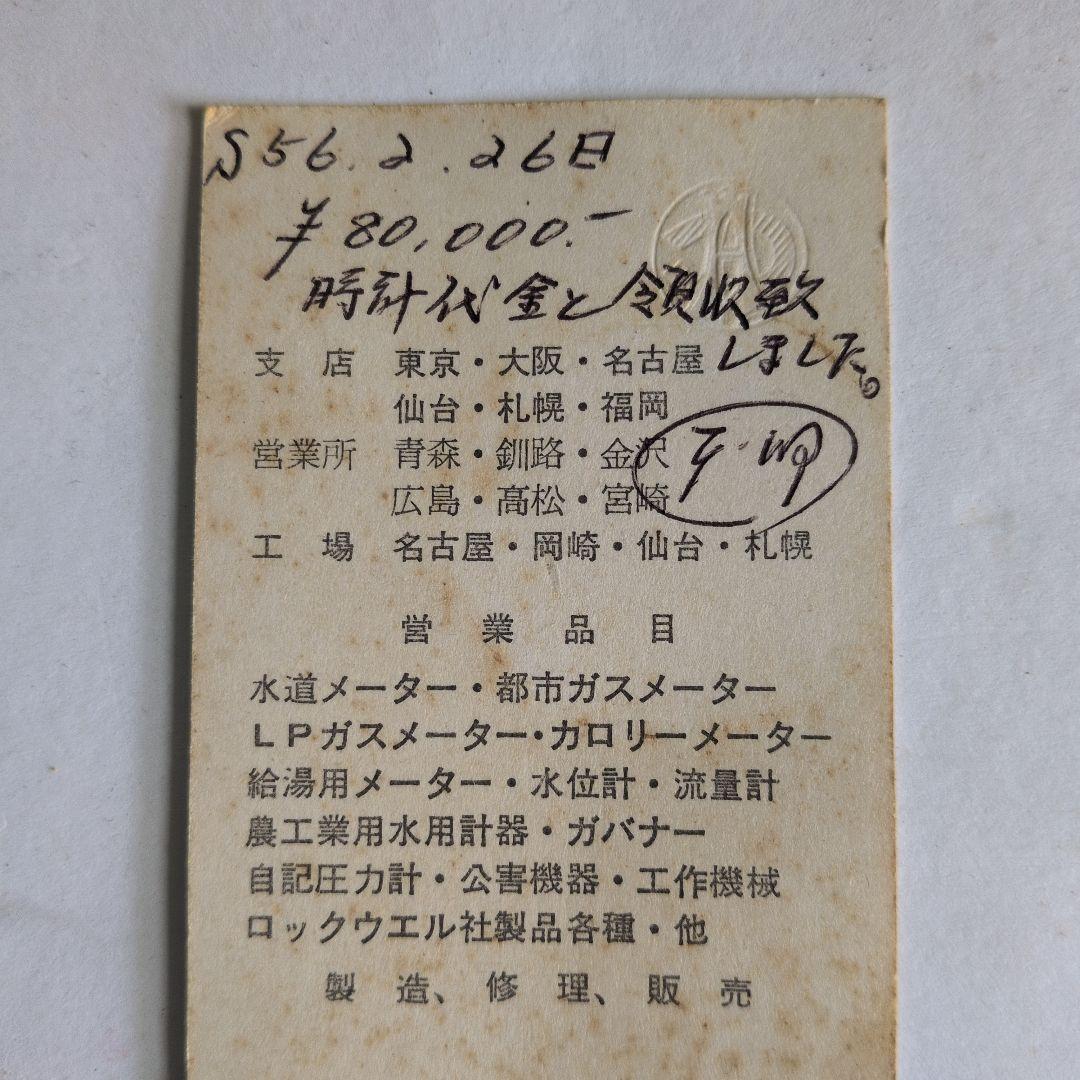 S56.2.26日
¥80,000.-
時計代金と領収致
しました。
支店 東京・大阪・名古屋
仙台・札幌・福岡
営業所 青森・釧路・金沢
広島・高松・宮崎
工場 名古屋・岡崎・仙台・札幌
営業品目
水道メーター・都市ガスメーター
LPガスメーター・カロリーメーター
給湯用メーター・水位計・流量計
農工業用水用計器・ガバナー
自記圧力計・公害機器・工作機械
ロックウエル社製品各種・他
製造、修理、販売